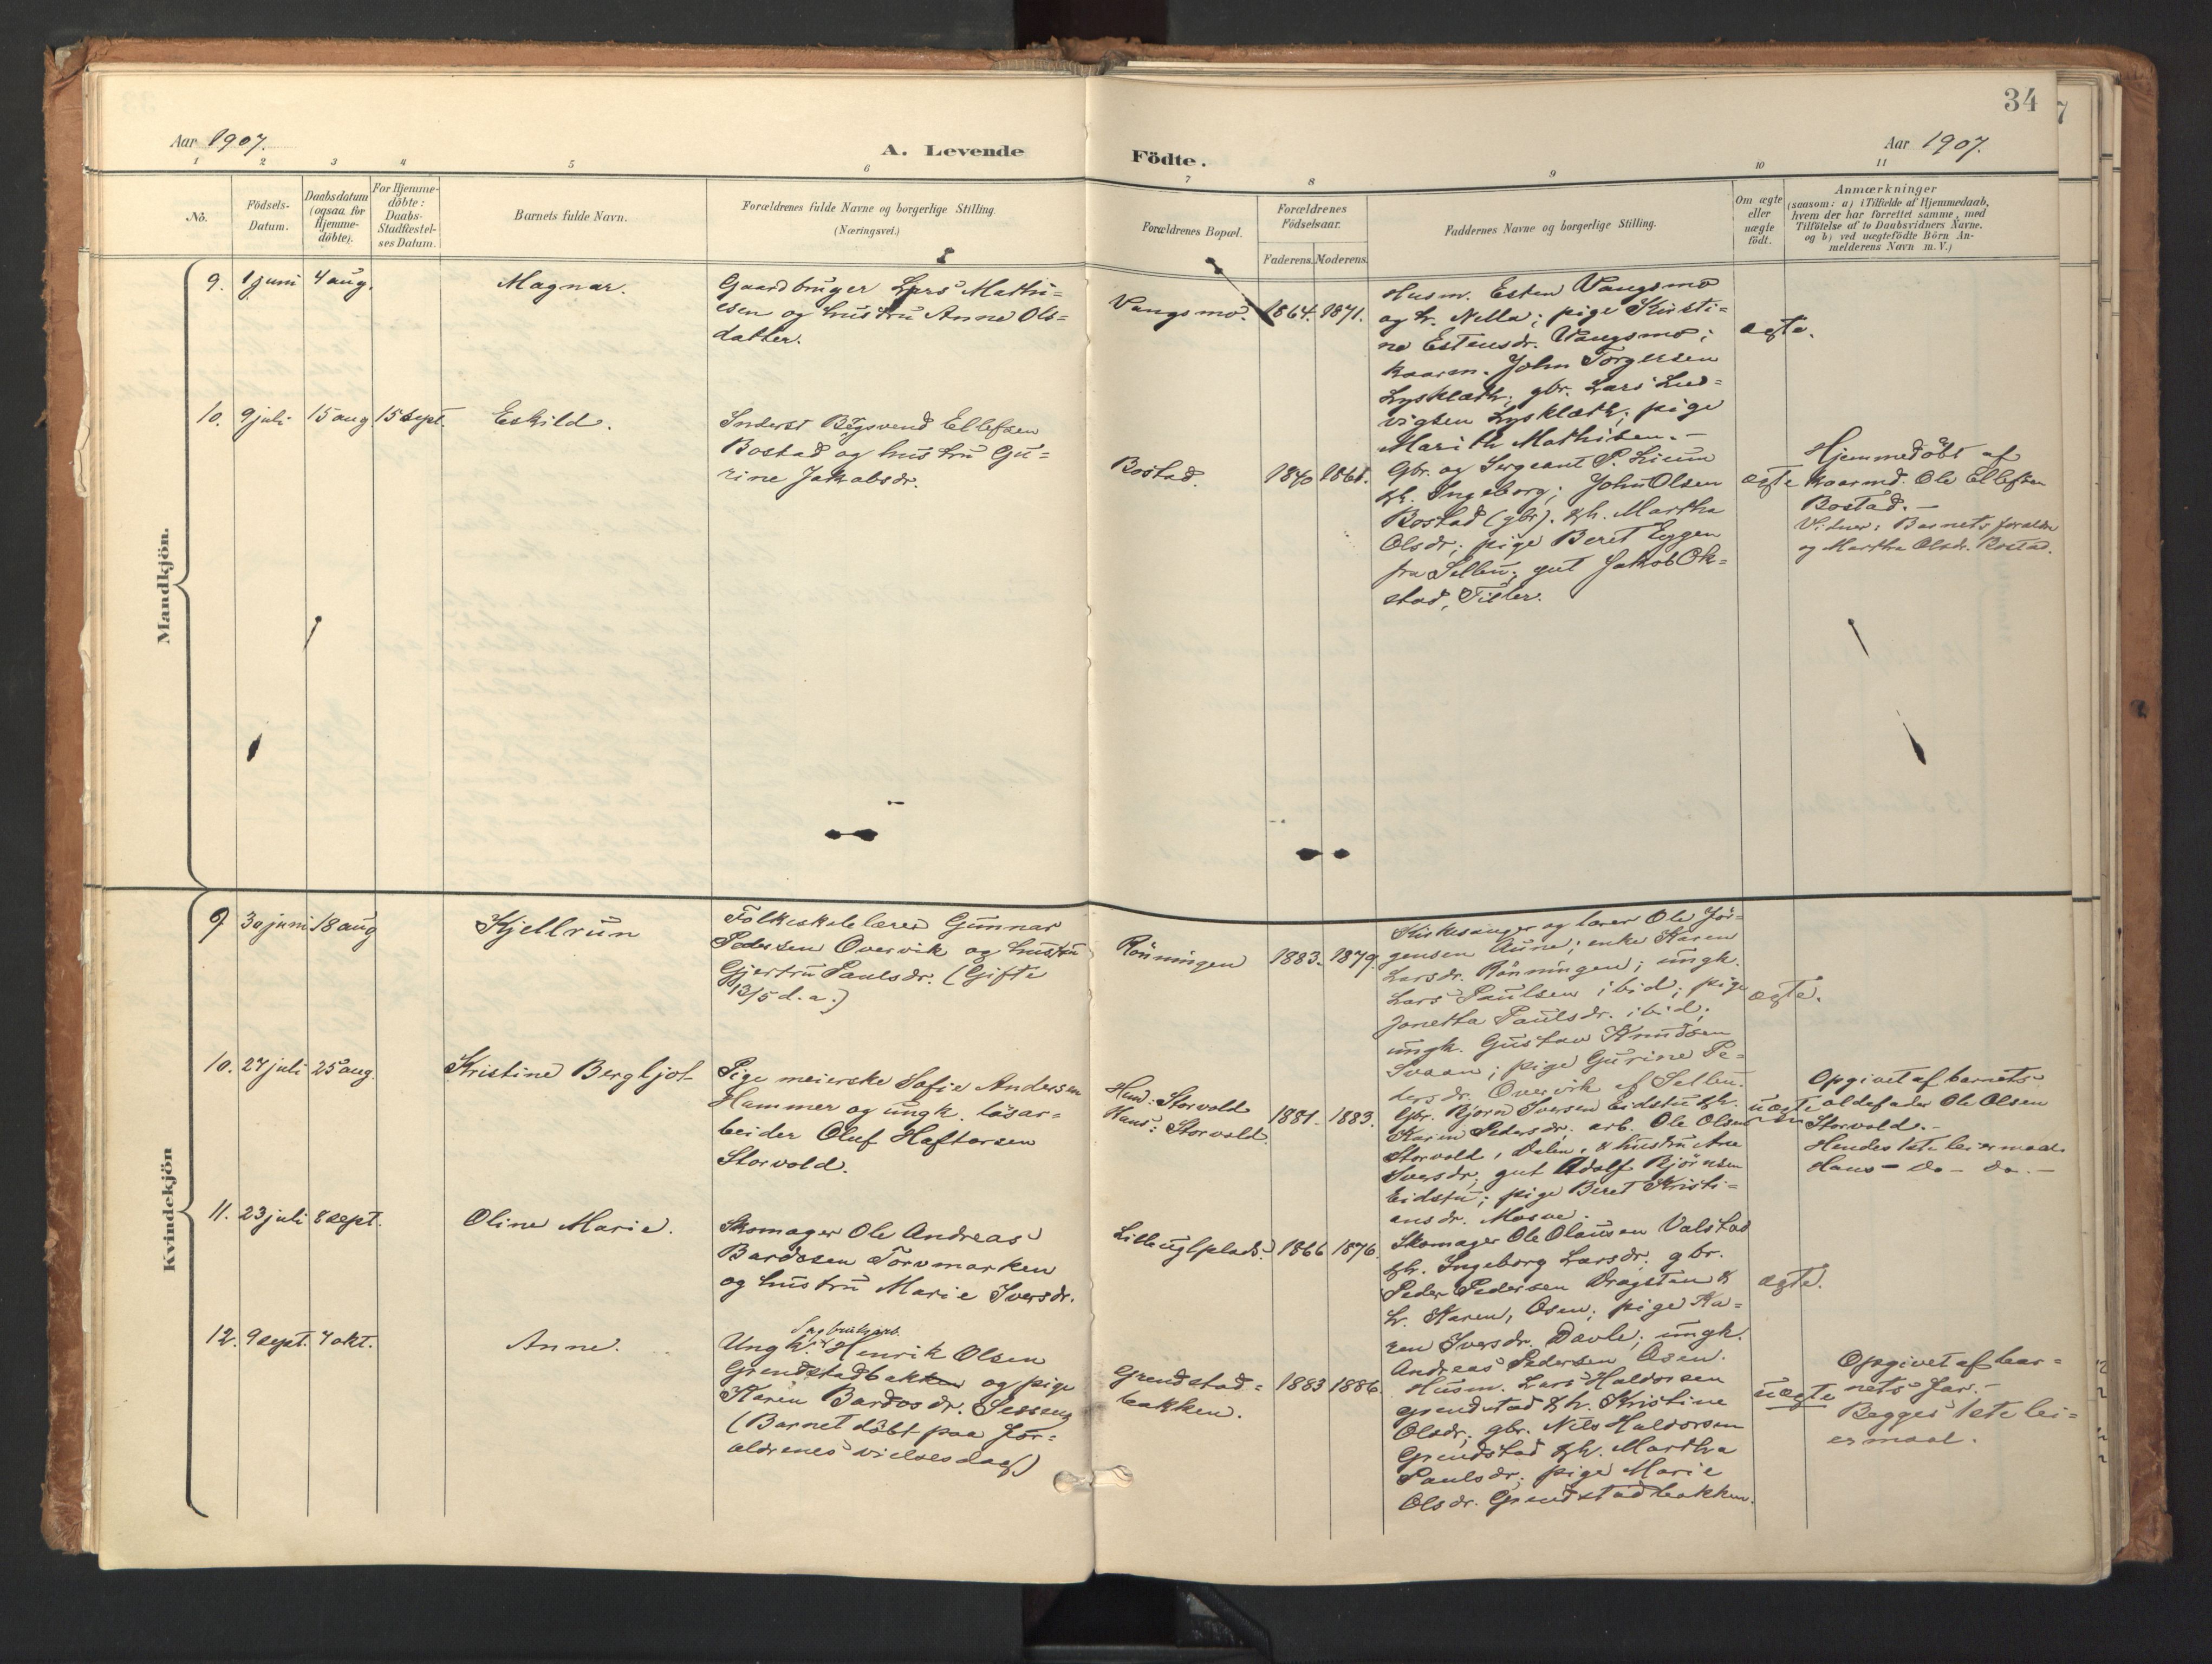 34
Aar 1907.
A. Levende
Födte.
Aar 1907.
1 2 3 4 5 6 7 8 9 10 11
No.
Födsels-
Datum.
Daabsdatum
(ogsaa for
Hjemme-
döbte).
For Hjemme-
döbte:
Daabs-
Stadfæstel-
ses Datum.
Barnets fulde Navn.
Forældrenes fulde Navne og borgerlige Stilling.
(Næringsvei.)
Forældrenes Bopæl.
Forældrenes
Födselsaar.
Faderens. Moderens.
Faddernes Navne og borgerlige Stilling.
Om ægte
eller
uægte
födt.
Anmærkninger
(saasom: a) i Tilfælde af Hjemmedaab,
hvem der har forrettet samme, med
Tilföielse af to Daabsvidners Navne,
og b) ved uægtefödte Börn An-
melderens Navn m. V.)
Mandkjön.
9. 1 juni 4 aug.
Magnar.
Gaardbruger Lars Mathi-
esen og hustru Anne Ols-
datter.
Vangsmo.
1864. 1871.
Husm. Esten Vangsmo
og h. Nella; pige Kristi-
ne Estensdr. Vangsmo;
kaarm. John Torgersen
Lysklæth; gbr. Lars Lud-
vigsen Lysklæth; pige
Marith Mathisen. -
ægte.
10. 9 juli 15 aug 15 sept.
Eskild.
Inderst Bøgsvend Ellefsen
Bostad og hustru Gu-
rine Jakobsdr.
Bostad.
1840 1868.
Gbr. og Sergeant P. Lium
&h. Ingeborg; John Olsen
Bostad (gbr). &h. Martha
Olsdr; pige Beret Eggen
fra Selbu; gut Jakob Ok-
stad, Tiller.
ægte
Hjemmedöbt af
kaarmd. Ole Ellefsen
Bostad. -
Vidner: Barnets forældre
og Martha Olsdr. Bostad.
Kvindekjön
9 30 juni 18 aug
Kjellrun
Folkeskolelærer Gunnar
Pedersen Overvik og hustru
Gjertru Paulsdr. (Gifte
13/5 d. a.)
Rönningen
1883. 1879.
Kirkesanger og lærer Ole Jör-
gensen Aune; enke Karen
Larsdr. Rönningen; ungk.
Lars Paulsen ibid; pige
Jonetta Paulsdr. ibid;
ungk. Gustav Knudsen
Svaan; pige Gurine Pe-
dersdr. Overvik af Selbu.
ægte.
10. 27 juli 25 aug.
Kristine Bergljot
Pige meierske Sofie Andersen
Hammer og ungk. lösar-
beider Oluf Haftorsen
Storvold.
Hend: Storvold
Hans: Storvold.
1881. 1883.
Gbr. Bjorn Iversen Eidstu &h.
Karen Pedersdr. arb. Ole Olsen
Storvold, Dalen, & hustru Ane
Iversdr; gut Adolf Bjørnsen
Eidstu; pige Beret Kristi-
ansdr. Mosve.
uægte
Opgivet af barnets
oldefader Ole Olsen
Storvold. -
Hendes 1ste leiermaal.
Hans - Do - Do. -
11. 23 juli 8 sept.
Oline Marie.
Skomager Ole Andreas
Bardosen Torvmarken
og hustru Marie Iversdr.
Lilleuglplads.
1866 1876.
Skomager Ole Olausen Valstad
&h. Ingeborg Larsdr; gbr.
Peder Pedersen Dragsten &
h. Karen, Osen; pige Ka-
ren Iversdr. Davle; ungk.
Andreas Pedersen Osen.
ægte.
12. 9 sept. 7 okt.
Anne.
Sagbruksarb.
Ungk. Henrik Olsen
Grendstadbakken og pige
Karen Bardosdr. Sesseng
(Barnet döbt paa For-
ældrenes vielsesdag.)
Grendstad-
bakken.
1883 1886.
Husm. Lars Haldorsen
Grendstad &h. Kristine
Olsdr; gbr. Nils Haldorsen
Grendstad &h. Martha
Paulsdr; pige Marie
Olsdr. Grendstadbakken.
uægte
Opgivet af bar-
nets Far. -
Begges 1ste lei-
ermaal.